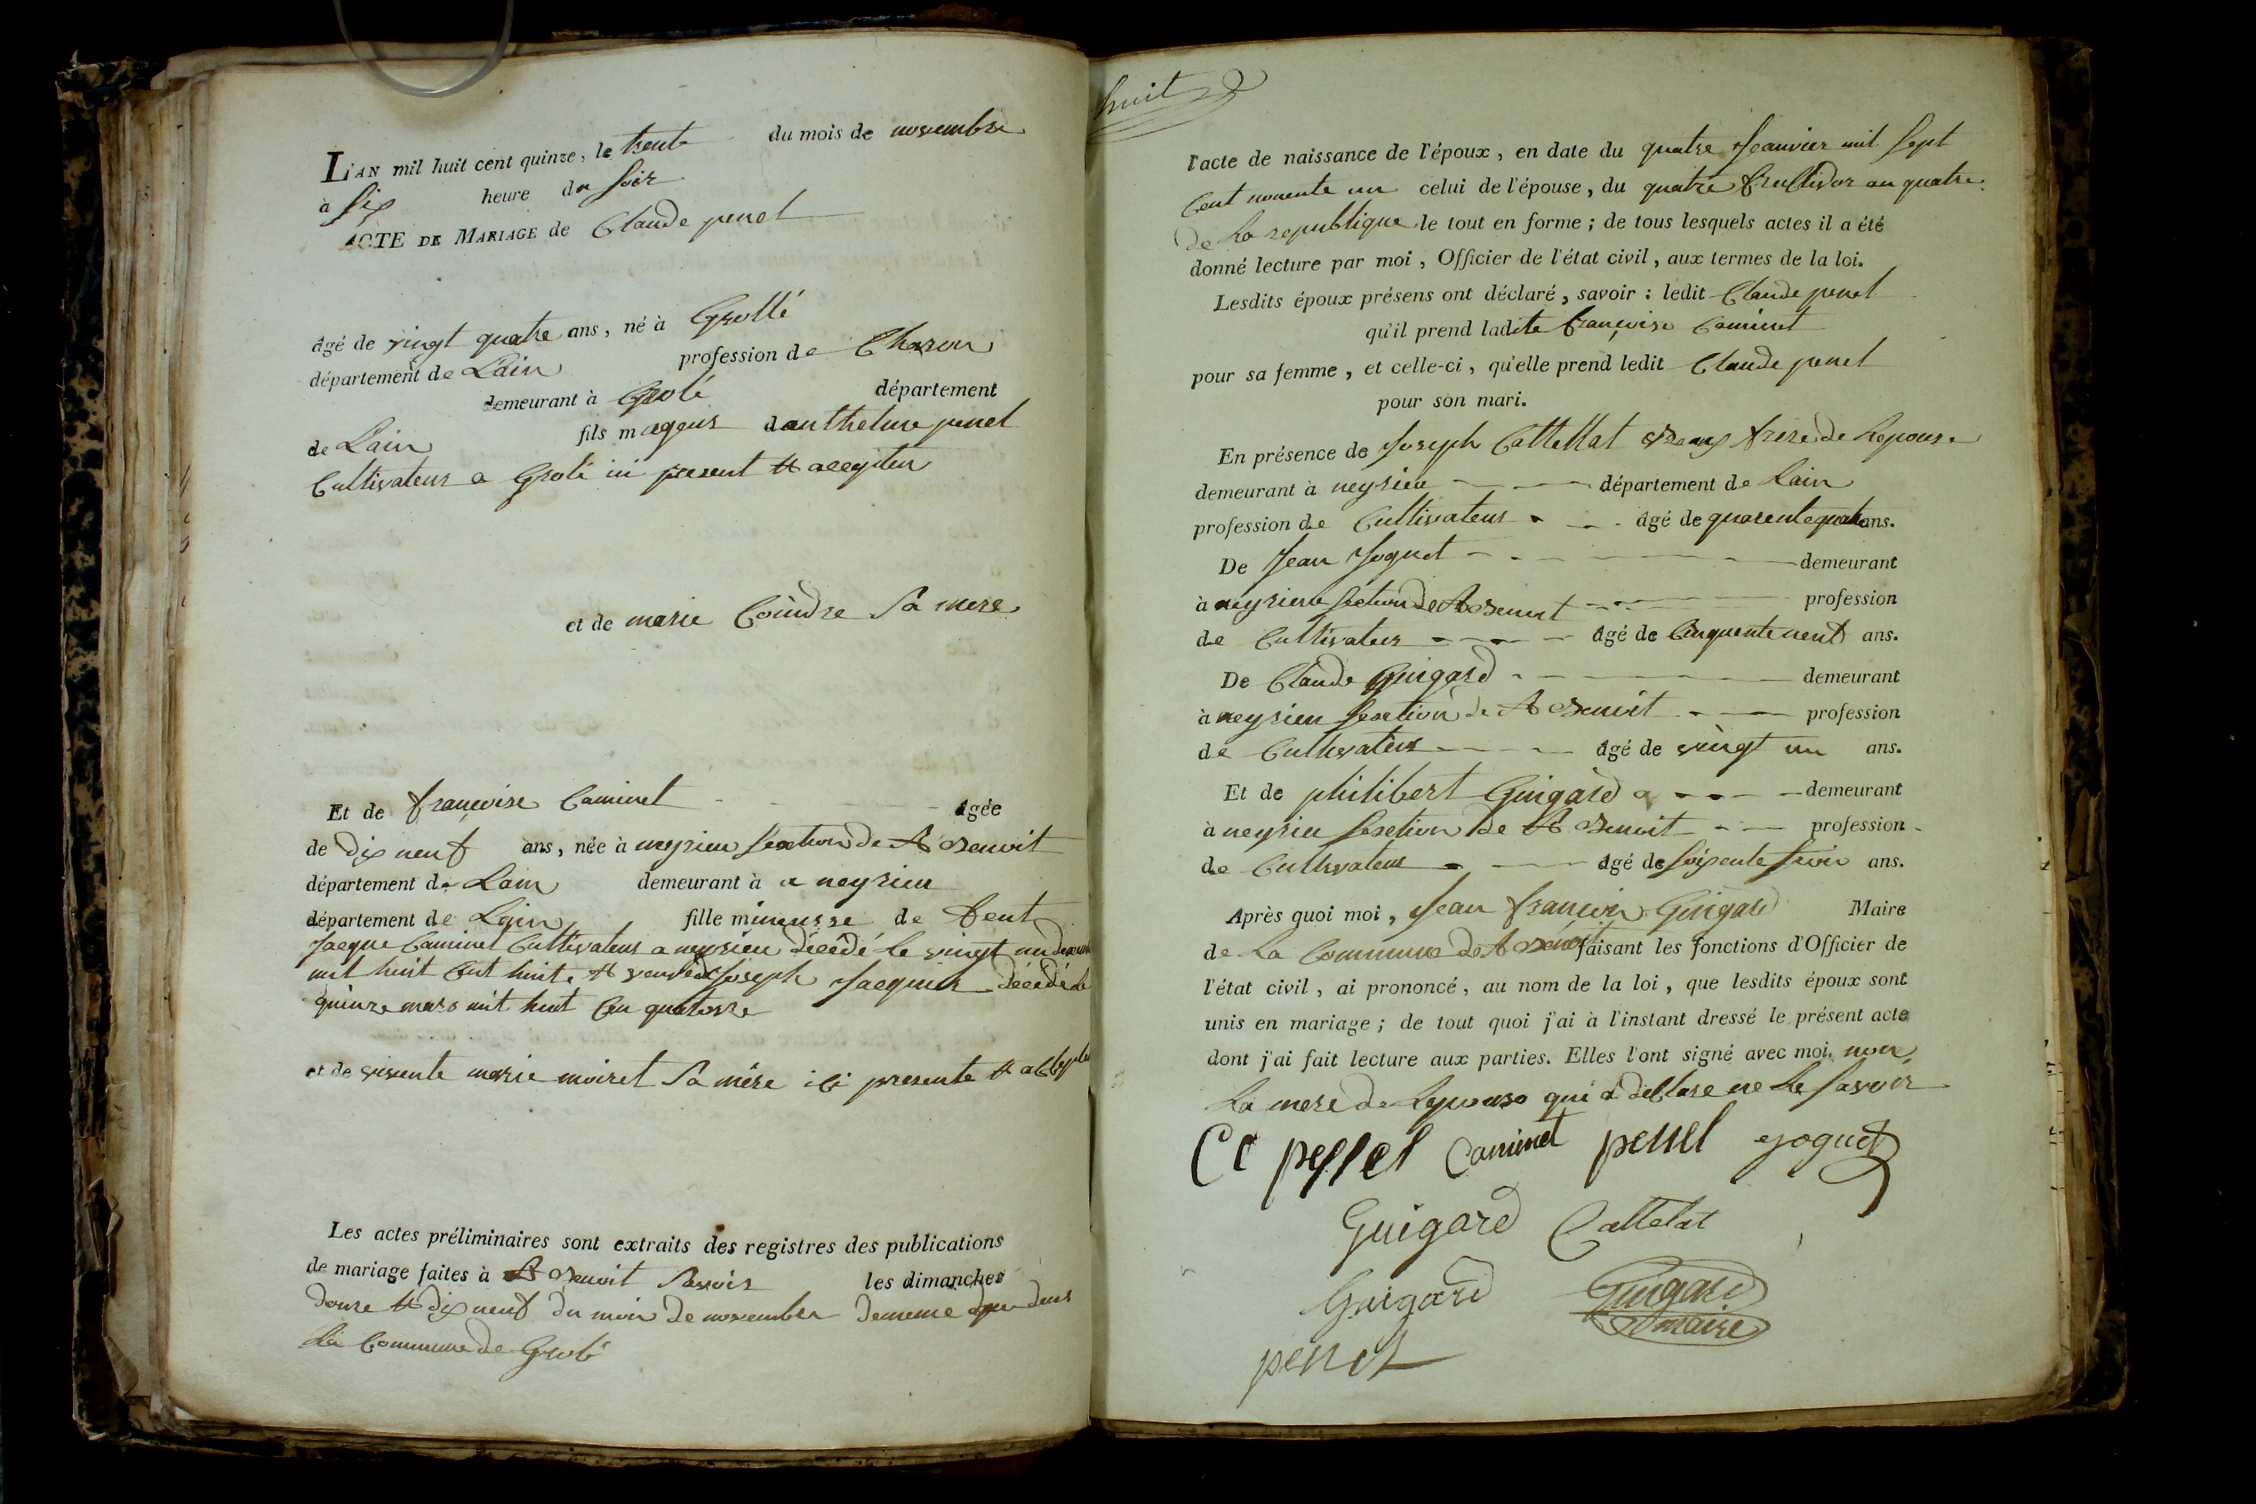 L'AN mil huit cent quinze, le trente du mois de novembre
à six heure du soir
ACTE DE MARIAGE de Claude penel
âgé de vingt quatre ans, né à Grollé
département de Lain profession de Charon
demeurant à Grolé département
de Lain fils mageur danthelme penel
Cultivateur a Grolé ici present et acceptan
et de marie Coindre Sa mere
Et de françoise Caminet âgée
de dix neuf ans, née à neyrieu section de St Benoit
département de Lain demeurant à a neyrieu
département de Lain fille mineusre de feut
Jacque Caminet Cultivateur a neyrieu décédé le vingt un
mil huit Cent huite et Joseph Jacquier décédé le
quinze mars mil huit Cen quatorze
et de vivente marie moiret Sa mére ici presente et
Les actes préliminaires sont extraits des registres des publications
de mariage faites à St Benoit Savoir les dimanches
douze et dix neuf du mois de novembre dememe que dens
La Commune de Grolé
huit
l'acte de naissance de l'époux, en date du quatre Jeanvier mil Sept
Cent novente un celui de l'épouse, du quatre fructidor an quatre
de La republique le tout en forme; de tous lesquels actes il a été
donné lecture par moi, Officier de l'état civil, aux termes de la loi.
Lesdits époux présens ont déclaré, savoir: ledit Claude penel
qu'il prend ladite françoise Caminet
pour sa femme, et celle-ci, qu'elle prend ledit Claude penel
pour son mari.
En présence de Joseph Cattellat Beaux frere de Lepouse
demeurant à neyrieu département de Lain
profession de Cultivateur âgé de quarente quatre ans.
De Jean Joguet demeurant
à neyrieu section de St Benoit profession
de Cultivateur âgé de Cinquente neuf ans.
De Claude Guigard demeurant
à neyrieu Section de St Benoit profession
de Cultivateur âgé de vingt un ans.
Et de philibert Guigard demeurant
à neyrieu Section de St Benoit profession
de Cultivateur âgé de soixente trois ans.
Après quoi moi, Jean françois Guigard Maire
de La Commune de St Benoit faisant les fonctions d'Officier de
l'état civil, ai prononcé, au nom de la loi, que lesdits époux sont
unis en mariage; de tout quoi j'ai à l'instant dressé le présent acte
dont j'ai fait lecture aux parties. Elles l'ont signé avec moi, non
La mere de Lepouse qui a declare ne Le Savoir
Caminet penel joguet
Guigard Cattelat
Guigard Guigard
maire
penel